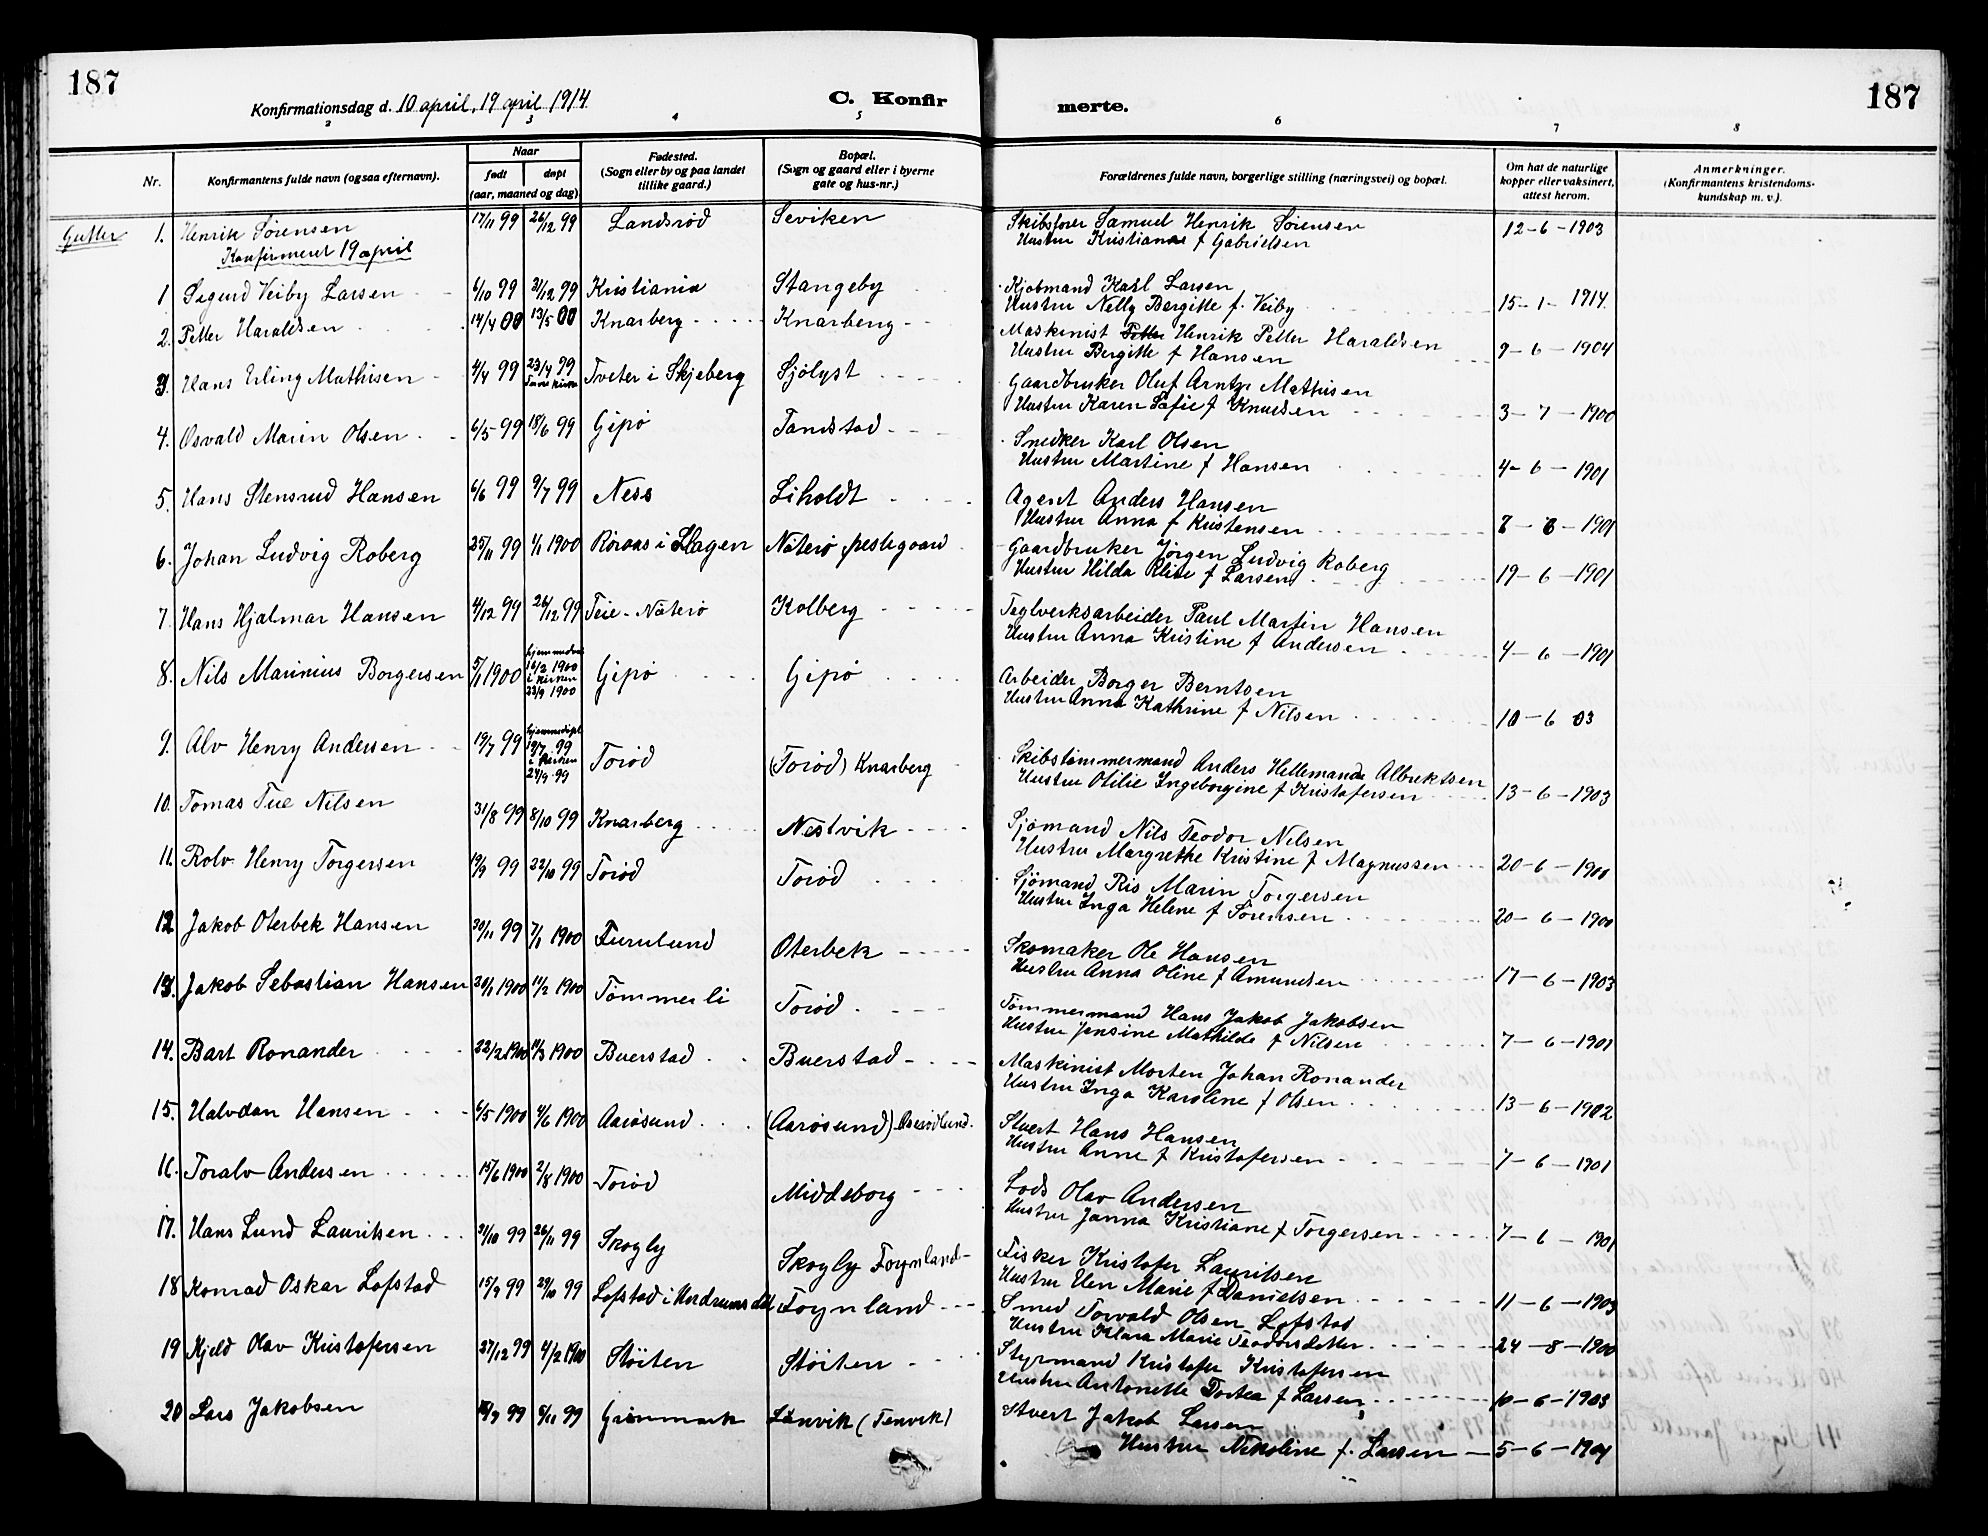 187
Konfirmationsdag d. 10 april, 19 april 1914
C. Konfir
merte.
187
2 3 4 5 6 7 8
Nr.
Konfirmantens fulde navn (ogsaa efternavn).
Naar
født
døpt
(aar, maaned og dag)
Fødested.
(Sogn eller by og paa landet
tillike gaard.)
Bopæl.
(Sogn og gaard eller i byerne
gate og hus-nr.)
Forældrenes fulde navn, borgerlige stilling (næringsvei) og bopæl.
Om hat de naturlige
kopper eller vaksinert,
attest herom.
Anmerkninger.
(Konfirmantens kristendoms-
kundskap m. v.).
Gutter
1. Henrik Sørensen 17/11 99 26/12 99 Landsrød Seviken Skibsfører Samuel Henrik Sørensen
Konfirmeret 19 april Hustru Kristiane f Gabrielsen 12-6-1903
1 Sigurd Veiby Larsen 6/10 99 31/12 99 Kristiania Stangeby Kjøbmand Karl Larsen
Hustru Nelly Bergitte f. Veiby 15-1-1914.
2. Petter Haraldsen 14/4 00 13/5 00 Knarberg Knarberg Maskinist Henrik Petter Haraldsen
Hustru Bergitte f Hansen 9-6-1904
3 Hans Erling Mathisen 4/4 99 23/4 99 Tveter i Skjeberg Sjølyst Gaardbruker Oluf Arntz Mathisen
Hustru Karen Sofie f Knudsen 3-7-1900
4. Osvald Marin Olsen 6/5 99 18/6 99 Gipø Tandstad Snedker Karl Olsen
Hustru Martine f Hansen 4-6-1901
5. Hans Stensrud Hansen 6/6 99 9/7 99 Ness Liholdt Agent Anders Hansen
Hustru Anna f Kristensen 7-6-1901
6. Johan Ludvig Roberg 25/11 99 1/1 1900 Roraas i Slagen Nøterø prestegaard Gaardbruker Jørgen Ludvig Roberg
Hustru Hilda Elise f Larsen 19-6-1901
7. Hans Hjalmar Hansen 4/12 99 26/12 99 Teie - Nøterø Kolberg Teglverksarbeider Paul Martin Hansen
Hustru Anna Kristine f Andersen 4-6-1901
8. Nils Marinius Borgersen 5/1 1900 hjemmedøpt 16/2 1900 i kirken 23/9 1900 Gipø Gipø Arbeider Borger Berntsen
Hustru Anna Kathrine f Nilsen 10-6 03
9. Alv Henry Andersen 19/7 99 hjemmedøpt 19/7 99 i kirken 24/9 99 Torød (Torød) Knarberg Skibstømmermand Anders Hellemande Albrektsen
Hustru Otilie Ingeborgine f Kristofersen 13-6-1903
10. Tomas Tue Nilsen 31/8 99 8/10 99 Knarberg Nestvik Sjømand Nils Teodor Nilsen
Hustru Margrethe Kristine f Magnussen 20-6-1900
11. Rolv Henry Torgersen 19/9 99 22/10 99 Torød Torød Sjømand Ris Marin Torgersen
Hustru Inga Helene f Sørensen 20-6-1900
12. Jakob Oterbek Hansen 30/11 99 7/1 1900 Furulund Oterbek Skomaker Ole Hansen
Hustru Anna Oline f Amundsen 17-6-1903
13. Jakob Sebastian Hansen 20/1 1900 11/2 1900 Tømmerli Torød Tømmermand Hans Jakob Jakobsen
Hustru Jensine Mathilde f Nilsen 7-6-1901
14. Bart Ronander 22/2 1900 11/3 1900 Buerstad Buerstad Maskinist Morten Johan Ronander
Hustru Inga Karoline f Olsen 13-6-1902
15. Halvdan Hansen 6/5 1900 4/6 1900 Aarøsund (Aarøsund) Stuert Hans Hansen
Hustru Anne f Kristofersen 7-6-1901
16. Toralv Andersen 15/6 1900 2/8 1900 Torød Middeborg Lods Olav Andersen
Hustru Janna Kristiane f Torgersen 7-6-1901
17. Hans Lund Lauritsen 31/10 99 26/11 99 Skogly Skogly Føynland Fisker Kristofer Lauritsen
Hustru Elen Marie f Danielsen 11-6-1903
18 Konrad Oskar Lofstad 15/9 99 29/10 99 Lofstad i Undrumsdal Føynland Smed Torvald Olsen Lofstad
Hustru Klara Marie Teodorsdatter 24-8-1900
19 Kjeld Olav Kristofersen 27/12 99 4/2 1900 Støiten Støiten Styrmand Kristofer Kristofersen
Hustru Antonette Dortea f Larsen 10-6-1903
20 Lars Jakobsen 99 5/11 99 Grønmark Lønvik (Tenvik) Stuert Jakob Larsen
Hustru Nikoline f. Larsen 5-6-1904